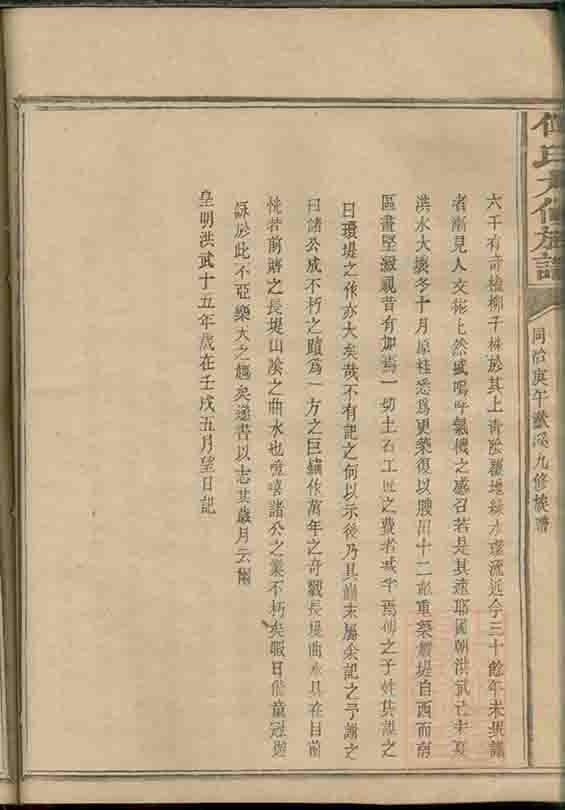 何氏九修族譜
同治庚午歡溪九修族譜
六千有奇植柳千株於其上青陰覆地綠水環流迄今三十餘年未與譜
者漸見人文彬上然盛嗚呼氣機之感召若是其速耶國朝洪武己未夏
洪水大壞冬十月原柱悉為更築復以腴田十二畝重築縣堤自西而南
區畫堅緻視昔有加焉一切土石工匠之費者減半焉他之子姓其謀之
曰瓊堤之作亦大矣哉不有記之何以示後乃具巔末屬余記之予謝之
曰諸公成不朽之蹟為一方之巨鎮作萬年之奇觀長堤曲水具在目前
恍若前賢之長堤山陰之曲水也噫嘻諸公之業不朽矣暇日偕童冠遊
詠於此不亞樂天之趣矣遂書以志其歲月云爾
皇明洪武十五年歲在壬戌五月望日記